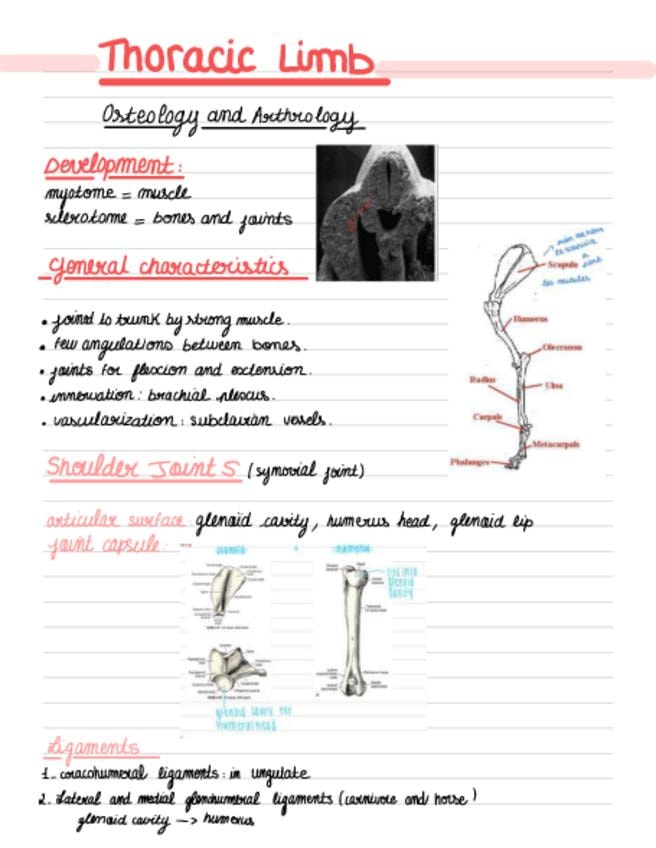 Thoracic Limb
Osteology and Arthrology
Development:
myotome = muscle
sclerotome = bones and joints
General characteristics
• joined to trunk by strong muscle.
• few angulations between bones.
• joints for flexion and extension.
• innervation: brachial plexus.
• vascularization: subclavian vessels.
Scapula
Humerus
Olecranon
Radius
Ulna
Carpals
Metacarpals
Phalanges
Shoulder Joint S (synovial joint)
articular surface: glenoid cavity, humerus head, glenoid lip
joint capsule:
scapula + humerus
glenoid cavity for
humeral head
Ligaments
1. coracohumeral ligaments: in ungulate
2. Lateral and medial glenohumeral ligaments (carnivore and horse)
glenoid cavity -> humerus